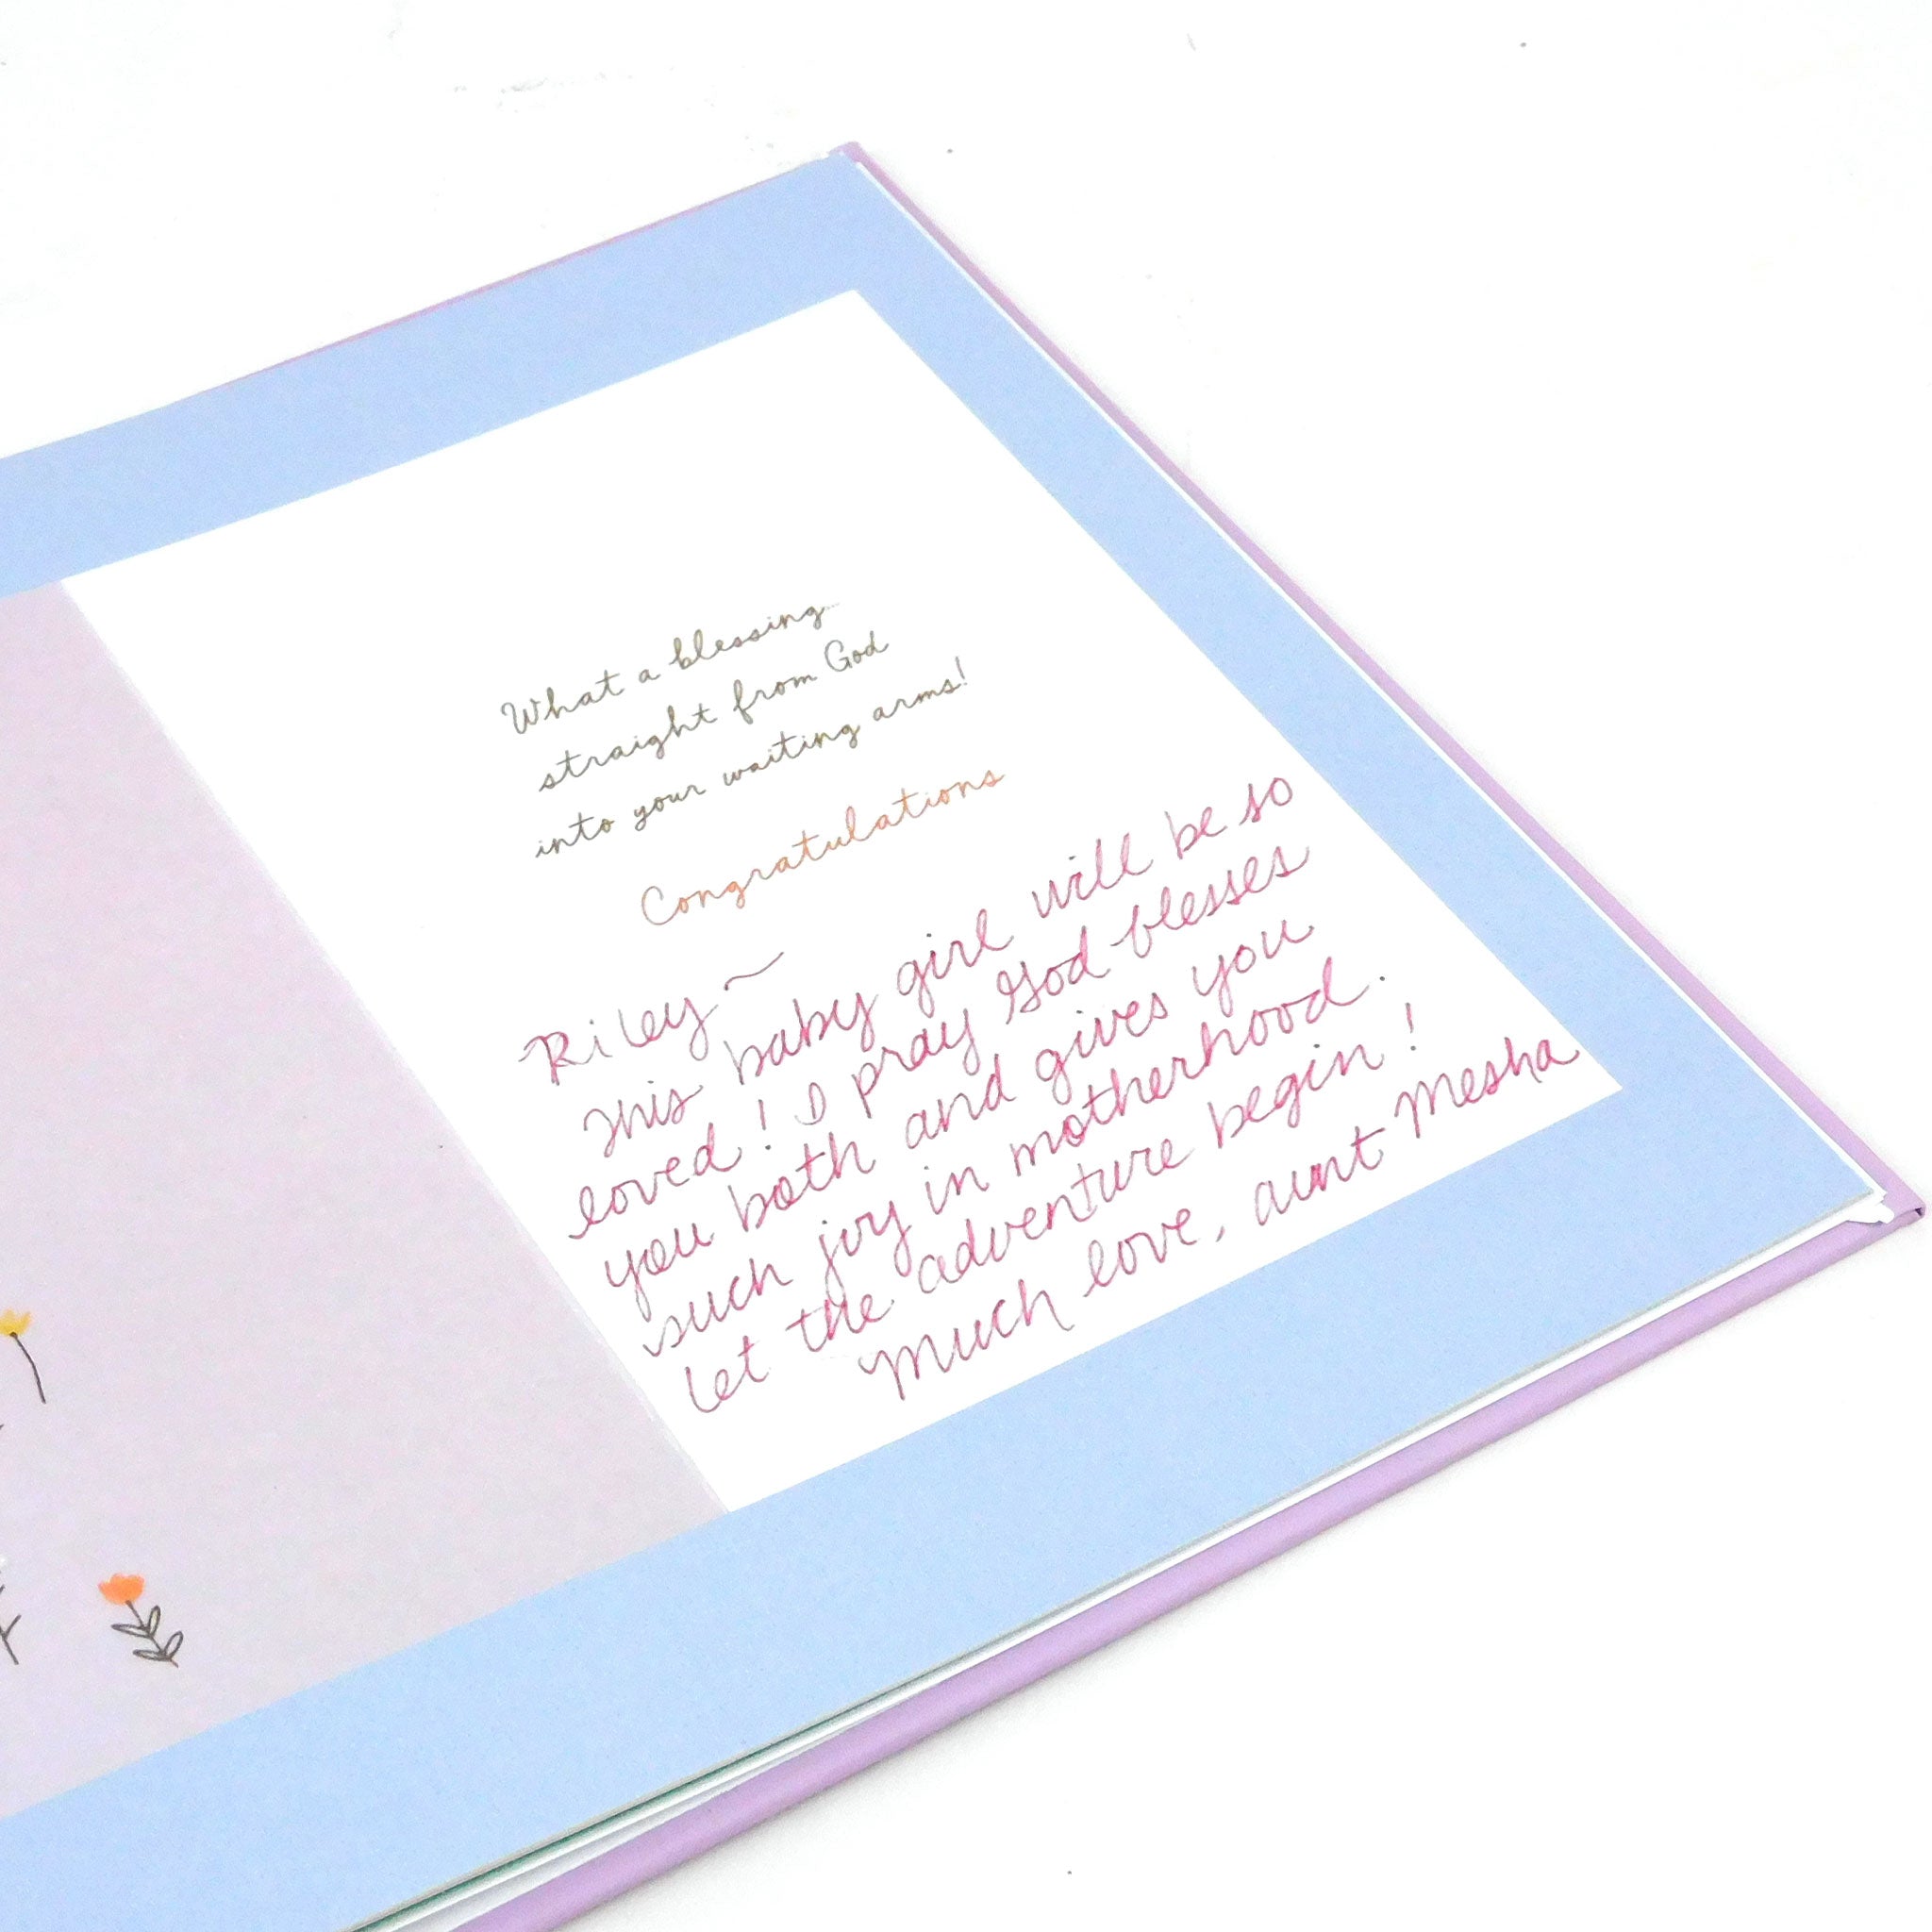 What a blessing
straight from God
into your waiting arms!
Congratulations
Riley~
This baby girl will be so
loved! I pray God blesses
you both and gives you
such joy in motherhood.
Let the adventure begin!
Much love, Aunt Mesha